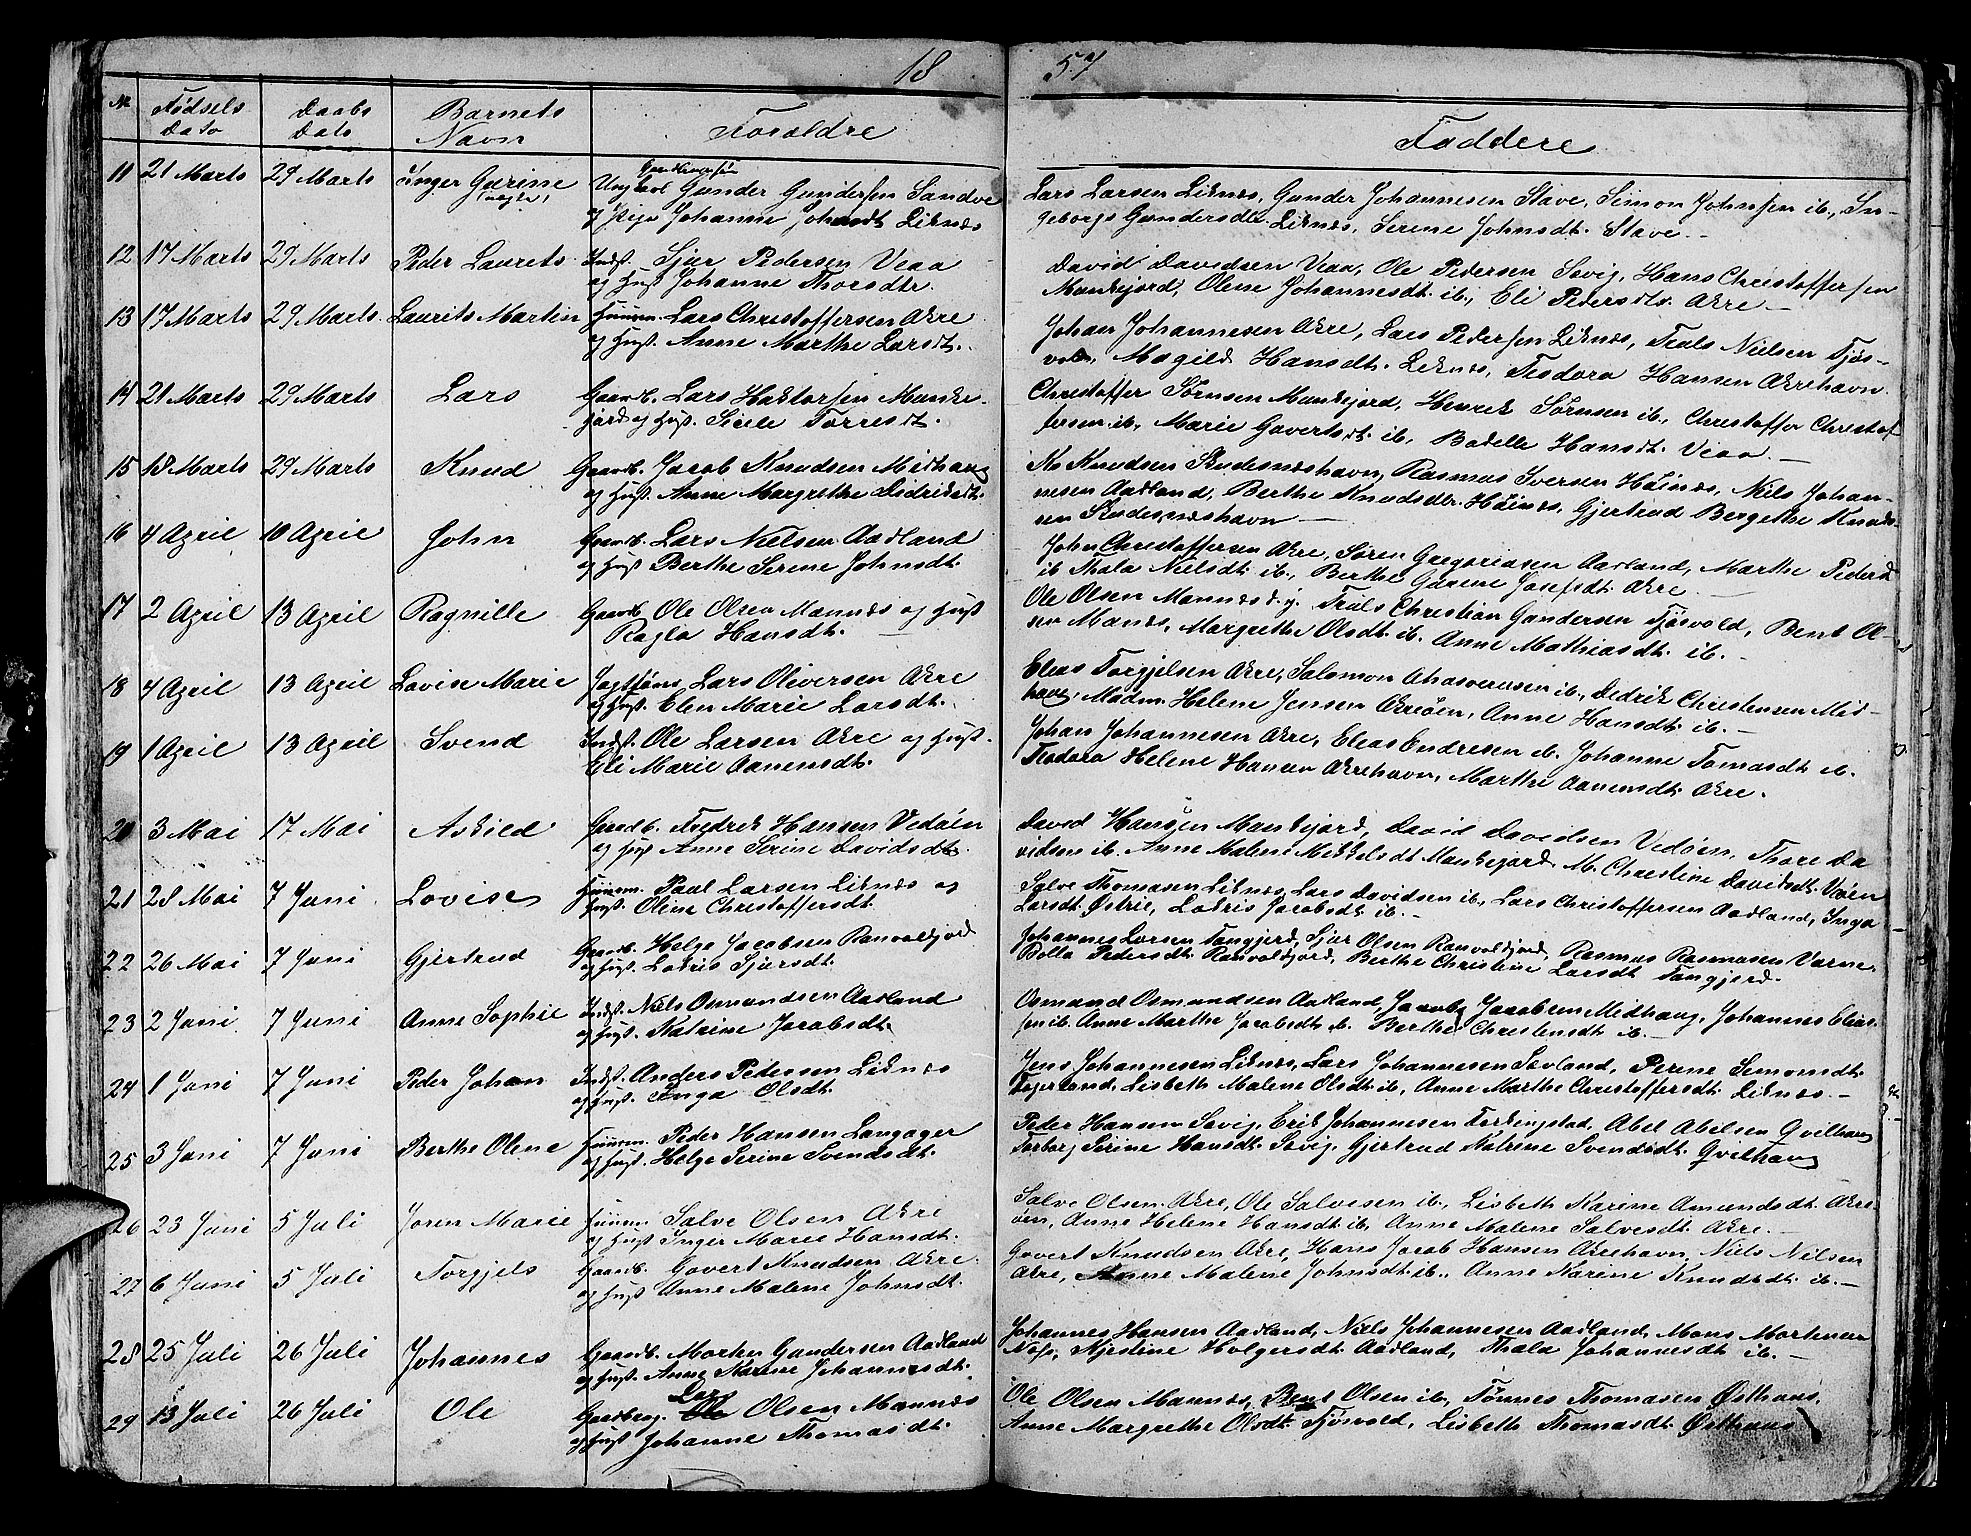 18 57
No Fødsels Dato Daabs Dato Barnets Navn Forældre Faddere
11 21 Marts 29 Marts Inger Gurine (uægte) Ungkarl Gunder Gundersen Sandve
og Pige Johanne Johansdt Liknæs
Lars Larsen Liknæs, Gunder Johannesen Stave, Simon Johnsen ib., In-
geborg Gundersdtr. Liknæs, Serene Johnsdt. Stave. —
12 17 Marts 29 Marts Peder Laurets Indst. Sjur Pedersen Veaa
og Hust Johanne Thorsdtr.
David Davidsen Veaa, Ole Pedersen Sævig, Hans Christoffersen
Munkejord, Olene Johannesdt. ib., Eli Pedersdtr. Akre —
13 17 Marts 29 Marts Laurits Martin Huusm. Lars Christoffersen Akre
og Hust. Anne Marthe Larsdt.
Johan Johannesen Akre, Lars Pedersen Liknæs, Truls Nielsen Tjøs-
vold, Magild Hansdt. Liknæs, Teodora Hansen Akrehavn.
14 21 Marts 29 Marts Lars Gaardb. Lars Haktorsen Munke-
jord og Hust. Sicele Torresdt.
Christoffer Sørnsen Munkejord, Henrik Sørnsen ib., Christoffer Christof
fersen ib., Marie Govertsdt. ib., Bodelle Hansdt. Veaa —
15 18 Marts 29 Marts Knud Gaardb. Jacob Knudsen Midhaug
og Hust. Anne Margrethe Didriksdt.
Kn Knudsen Skudesnæshavn, Rasmus Iversen Høinæs, Niels Johan-
nesen Aadland, Berthe Knudsdtr. Høinæs, Gjertrud Bergethe Knud-
sen Skudesnæshavn —
16 4 April 10 April John Gaardb. Lars Nielsen Aadland
og Hust Berthe Serene Johnsdt.
John Christoffersen Akre, Søren Gregoriasen Aadland, Marthe Pedersd
ib Thala Nielsdt. ib., Berthe Gurene Josefsdt. Akre —
17 2 April 13 April Ragnille Gaardb. Ole Olsen Mannæs og Hust
Ragla Hansdt. —
Ole Olsen Mannæs d.y. Truls Christian Gundersen Tjøsvold, Bent Ol-
sen Manæs, Margrethe Olsdt. ib. Anne Mathiasdt. ib. —
18 4 April 13 April Lovise Marie Lars Oliversen Akre
og Hust. Elen Marie Larsdt.
Elias Torgjelsen Akre, Salomon Ahasverusen ib., Dedrik Christensen Mid-
haug, Madm. Helene Jensen Akreøen, Anne Hansdt. ib. —
19 1 April 13 April Svend Indst. Ole Larsen Akre og Hust.
Eli Marie Aanensdt.
Johan Johannesen Akre, Elias Endresen ib. Johanne Tomasdt. ib.
Teodora Helene Hansen Akrehavn, Marthe Aanensdt. Akre.
20 3 Mai 17 Mai Askild Gaardb. Fredrik Hansen Vedøen
og Hust Anne Serine Davidsdt.
David Hansen Munkejord, David Davidsen Vedøen, Thore Da
vidsen ib. Anne Malene Mikkelsdt Munkejord M. Christine Davidsdt. Veøen
21 28 Mai 7 Juni Lovise Huusm. Paul Larsen Liknæs og
Hust. Oline Christoffersdt.
Salve Thomasen Liknæs, Lars Davidsen ib., Lars Christoffersen Aadland, Inga
Larsdt. Østrie, Lodris Jacobsdt ib. —
22 26 Mai 7 Juni Gjertrud Gaardb. Helge Jacobsen Ranvoldjord
og Hust. Lodris Sjursdt.
Johannes Larsen Tangjerd, Sjur Olsen Ranvoldjord, Rasmus Rasmusen Varne-
Bolla Pedersdt. Ranvoldjord, Berthe Christine Larsdt Tangjerd.
23 2 Juni 7 Juni Anne Sophie Indst. Niels Osmundsen Aadland
og Hust. Katrine Jacobsdt.
Osmund Osmundsen Aadland, Jacob Jacobsen Midhaug, Johannes Elias-
sen ib. Anne Marthe Jacobsdt ib. Berthe Christensdt ib. —
24 1 Juni 7 Juni Peder Johan Indst. Anders Pedersen Liknæs
og Hust. Inga Olsdt.
Jens Johannesen Liknæs, Lars Johannesen Sevland, Perne Simonsdt.
Lisbeth Malene Olsdt ib., Anne Marthe Christoffersdt. Liknæs. —
25 3 Juni 7 Juni Berthe Olene Huusm. Peder Hansen Langager
og Hust. Helge Serine Svendsdt.
Peder Hansen Sævig, Erik Johannesen Torkingstad, Abel Abelsen Qvilhaug
Torborg Serine Hansdt. Sævig, Gjertrud Katrine Svendsdt. Qvilhaug
26 23 Juni 5 Juli Joren Marie Huusm. Salve Olsen Akre
og Hust Inger Marie Hansdt.
Salve Olsen Akre, Ole Salvesen ib., Lisbeth Karine Amundsdt. Akre-
øen, Anne Helene Hansdt. ib., Anne Malene Salvesdt. Akre. —
27 6 Juni 5 Juli Torgjels Gaardb. Govert Knudsen Akre.
og Hust Anne Malene Johnsdt.
Govert Knudsen Akre, Hans Jacob Hansen Akrehavn, Niels Nilsen
Akre, Anne Malene Johnsdt. ib., Anne Karine Knudsdt ib. —
28 25 Juli 26 Juli Johannes Gaardb. Morten Gundersen Aadland
og Hust. Anne Karine Johannesdt.
Johannes Hansen Aadland, Niels Johannesen Aadland, Mons Mortensen
Næs, Kjestine Holgersdt. Aadland, Thala Johannesdt ib. —
29 13 Juli 26 Juli Ole Gaardbrg. Lars Olsen Mannæs
og Hust Johanne Thomasdt.
Ole Olsen Mannæs, Bent Olsen ib., Tønnes Thomasen Østhuus,
Anne Margrethe Olsdt. Tjøsvold, Lisbeth Thomasdt. Østhuus